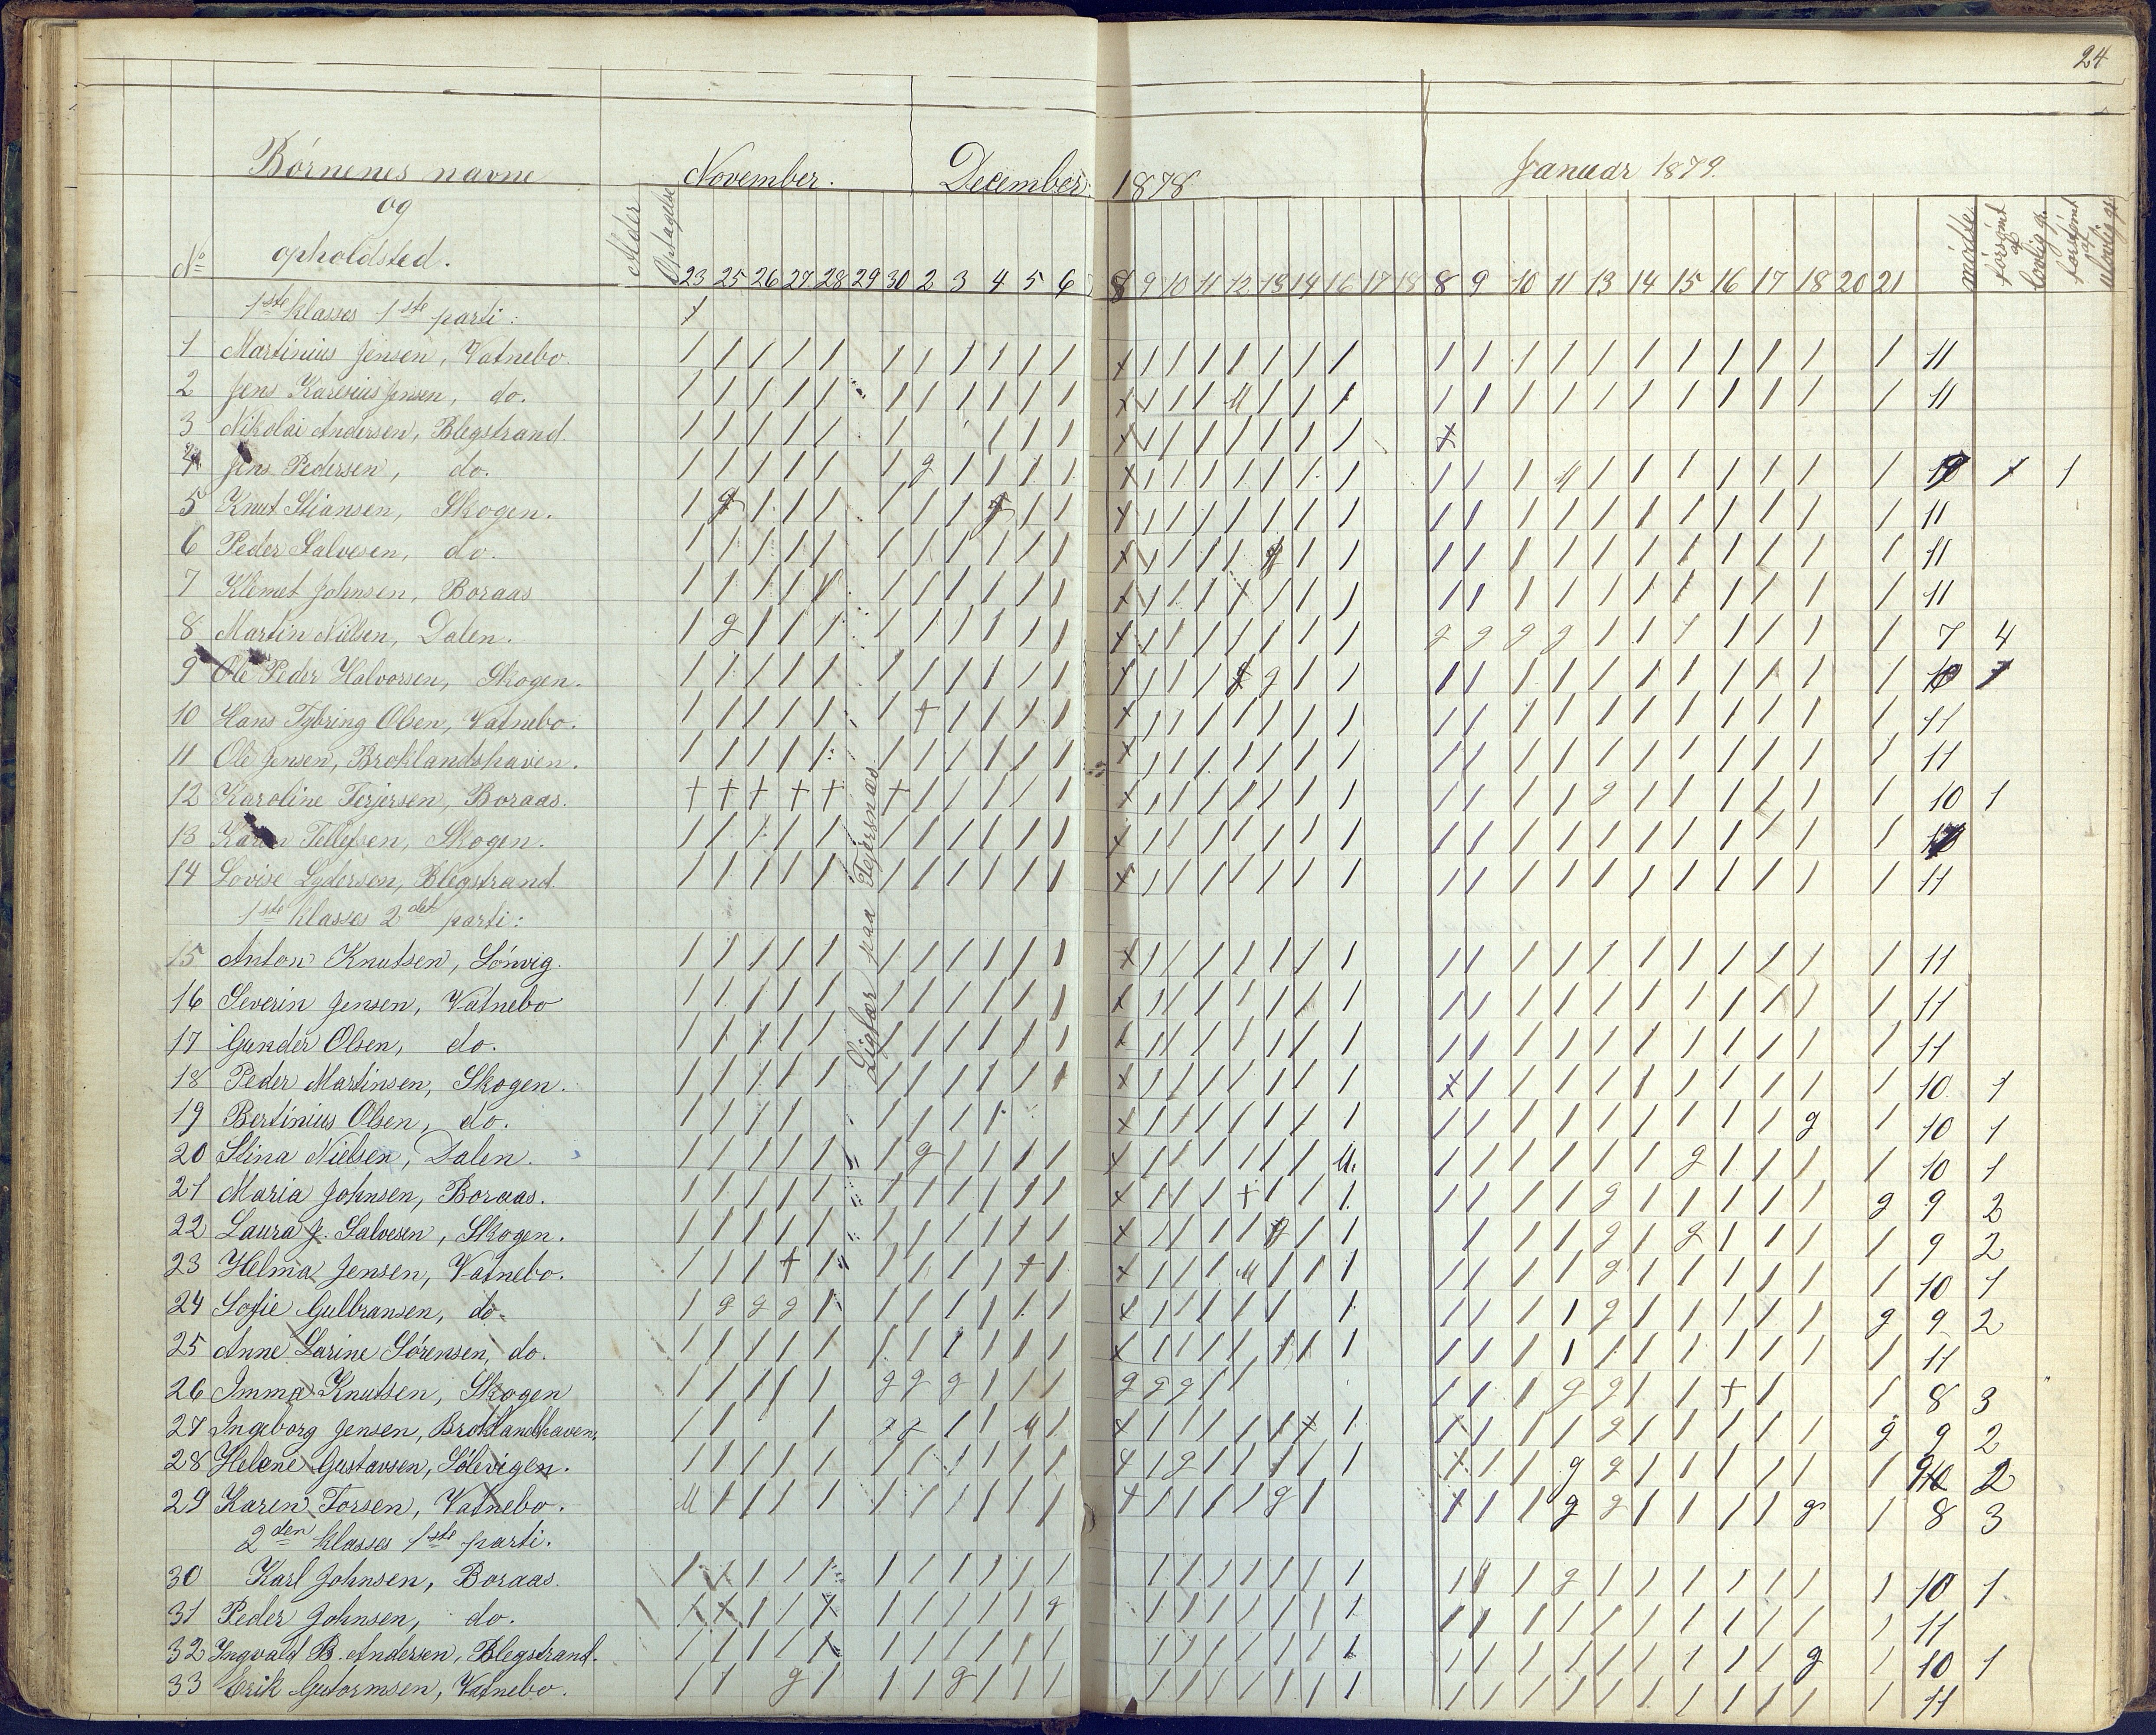 24
Börnenes navne
og
opholdsted.
No
Alder
Optagelse
November.
December
1878
Januar 1879.
23 25 26 27 28 29 30 2 3 4 5 6
8 9 10 11 12 13 14 16 17 18
8 9 10 11 13 14 15 16 17 18 20 21
mödte
forsömt af lovlig gr.
forsömt af ulovlig gr.
1ste klasses 1ste parti:
1 Martinius Jensen, Vatnebo. 11
2 Jens Karenius Jensen, do. 11
3 Nikolai Andersen, Blegstrand.
4 Jens Pedersen, do. 1
5 Knut Stiansen, Skogen. 11
6 Peder Salvesen, do. 11
7 Klemet Johnsen, Boraas 11
8 Martin Nilsen, Dalen. 7 4
9 Ole Peder Halvorsen, Skogen.
10 Hans Tybring Olsen, Vatnebo. 11
11 Ole Jensen, Broklandshaven. 11
12 Karoline Terjersen, Boraas. 10 1
13 Karen Tellefsen, Skogen.
14 Lovise Lydersen, Blegstrand. 11
1ste klasses 2det parti:
15 Anton Knutsen, Sönvig. 11
16 Severin Jensen, Vatnebo 11
17 Gunder Olsen, do. 11
18 Peder Martinsen, Skogen. 10 1
19 Bertinius Olsen, do. 10 1
20 Stina Nielsen, Dalen. 10 1
21 Maria Johnsen, Boraas. 9 2
22 Laura J. Salvesen, Skogen. 9 2
23 Helma Jensen, Vatnebo. 10 1
24 Sofie Gulbransen, do. 9 2
25 Anne Larine Sörensen, do. 11
26 Imma Knutsen, Skogen 8 3
27 Ingeborg Jensen, Broklandshaven. 9 2
28 Helene Gustavsen, Sölevigen. 9 2
29 Karen Torsen, Vatnebo. 8 3
2den klasses 1ste parti.
30 Karl Johnsen, Boraas. 10 1
31 Peder Johnsen, do. 11
32 Ingvald B. Andersen, Blegstrand. 10 1
33 Erik Gutormsen, Vatnebo. 11
Ligfær paa Tejersnæs